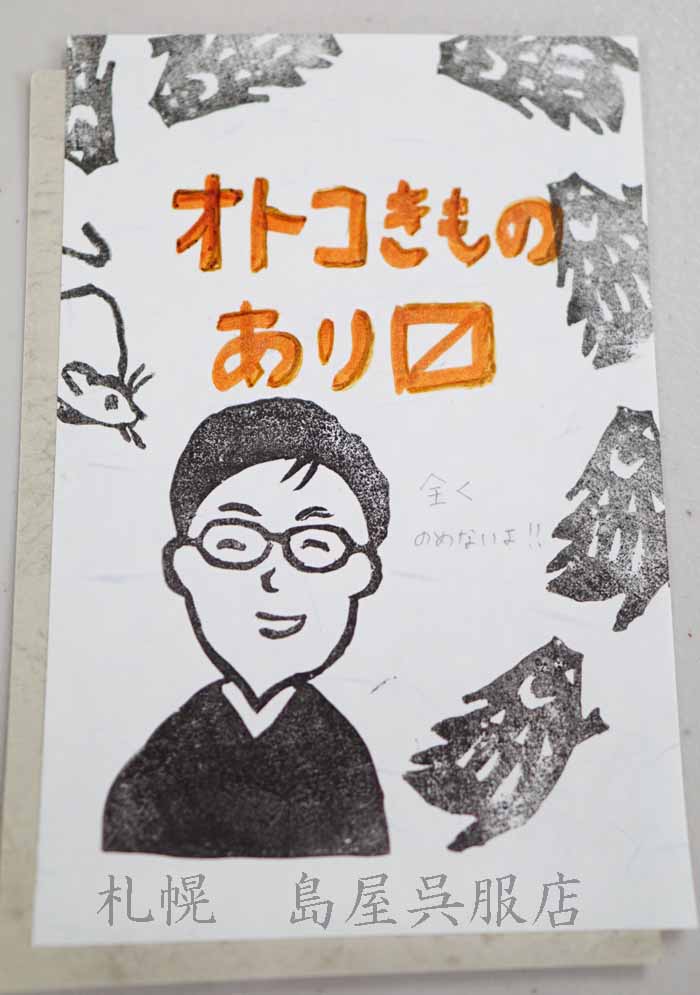 オトコきもの
あり〼
全く
のめないよ!!
札幌　島屋呉服店